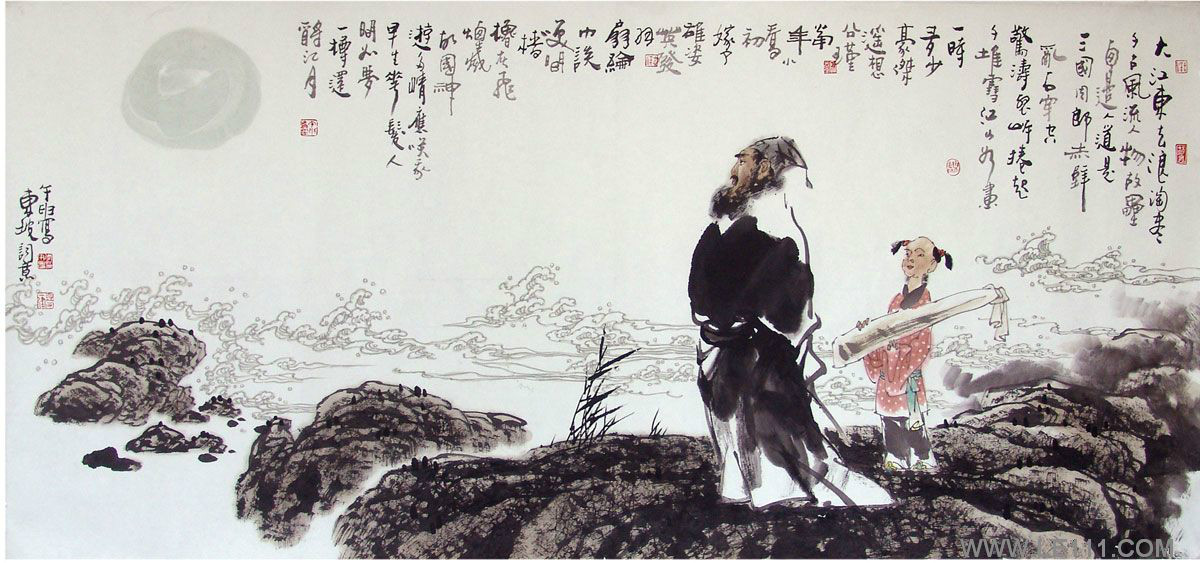 大江東去浪淘盡
千古風流人物故壘
西邊人道是
三國周郎赤壁
亂石穿空
驚濤拍岸捲起
千堆雪江山如畫
一時
多少
豪傑
遙想
公瑾
當
年小
喬初
嫁了
雄姿
英發
羽
扇綸
巾談
笑間
檣
櫓灰飛
煙滅
故國神
遊多情應笑我
早生華髮人
間如夢
一樽還
酹江月
寫
東坡詞意